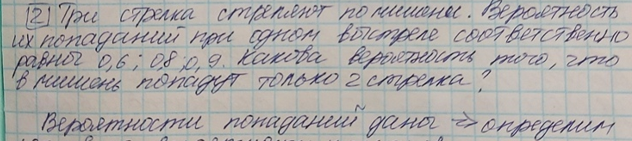 [2] Три стрелка стреляют по мишени. Вероятность
их попадании при одном выстреле соответственно
равно 0,6; 08; 0,9. Какова вероятность того, что
в мишень попадут только 2 стрелка?
Вероятности попаданий даны => определим